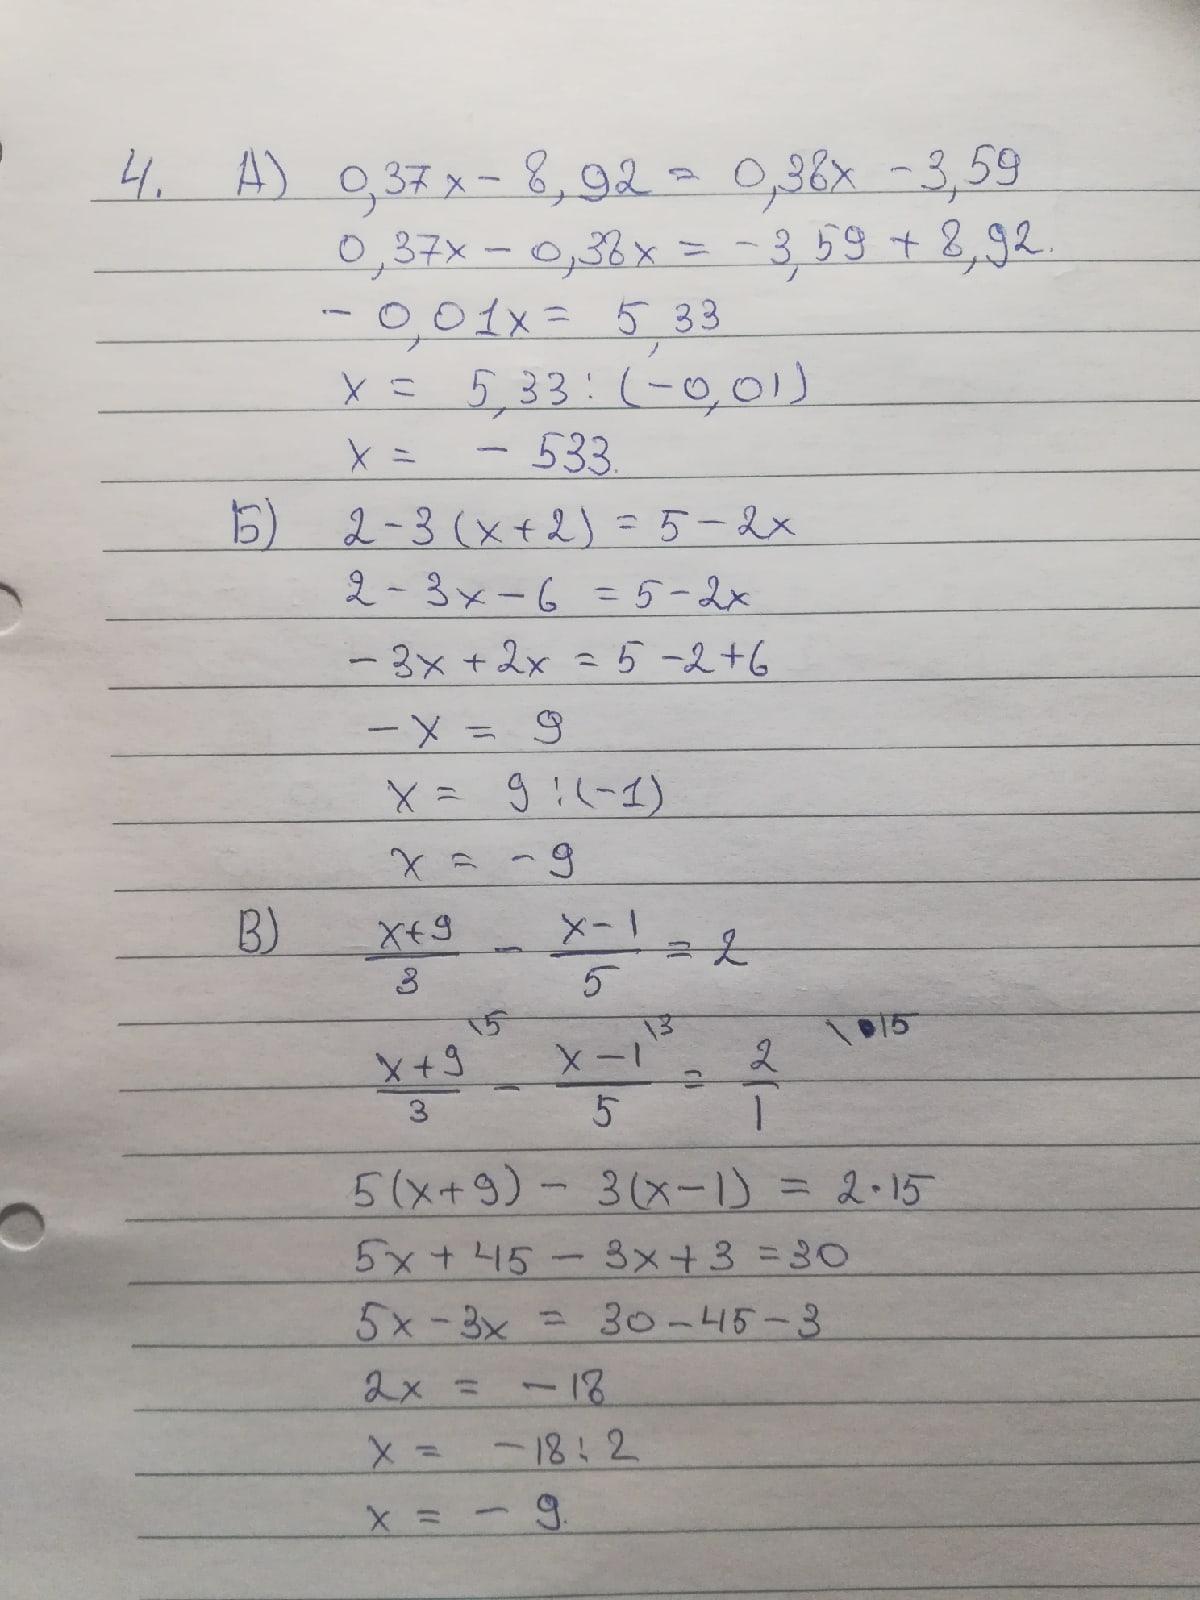 4. А) 0,37x - 8,92 = 0,38x - 3,59
0,37x - 0,38x = -3,59 + 8,92.
- 0,01x = 5,33
x = 5,33 : (-0,01)
x = - 533.
Б) 2 - 3(x+2) = 5 - 2x
2 - 3x - 6 = 5 - 2x
- 3x + 2x = 5 - 2 + 6
- x = 9
x = 9 : (-1)
x = - 9
В) (x+9)/3 - (x-1)/5 = 2
(x+9)/3 \5 - (x-1)/5 \3 = 2/1 \15
5(x+9) - 3(x-1) = 2·15
5x + 45 - 3x + 3 = 30
5x - 3x = 30 - 45 - 3
2x = - 18
x = - 18 : 2
x = - 9.